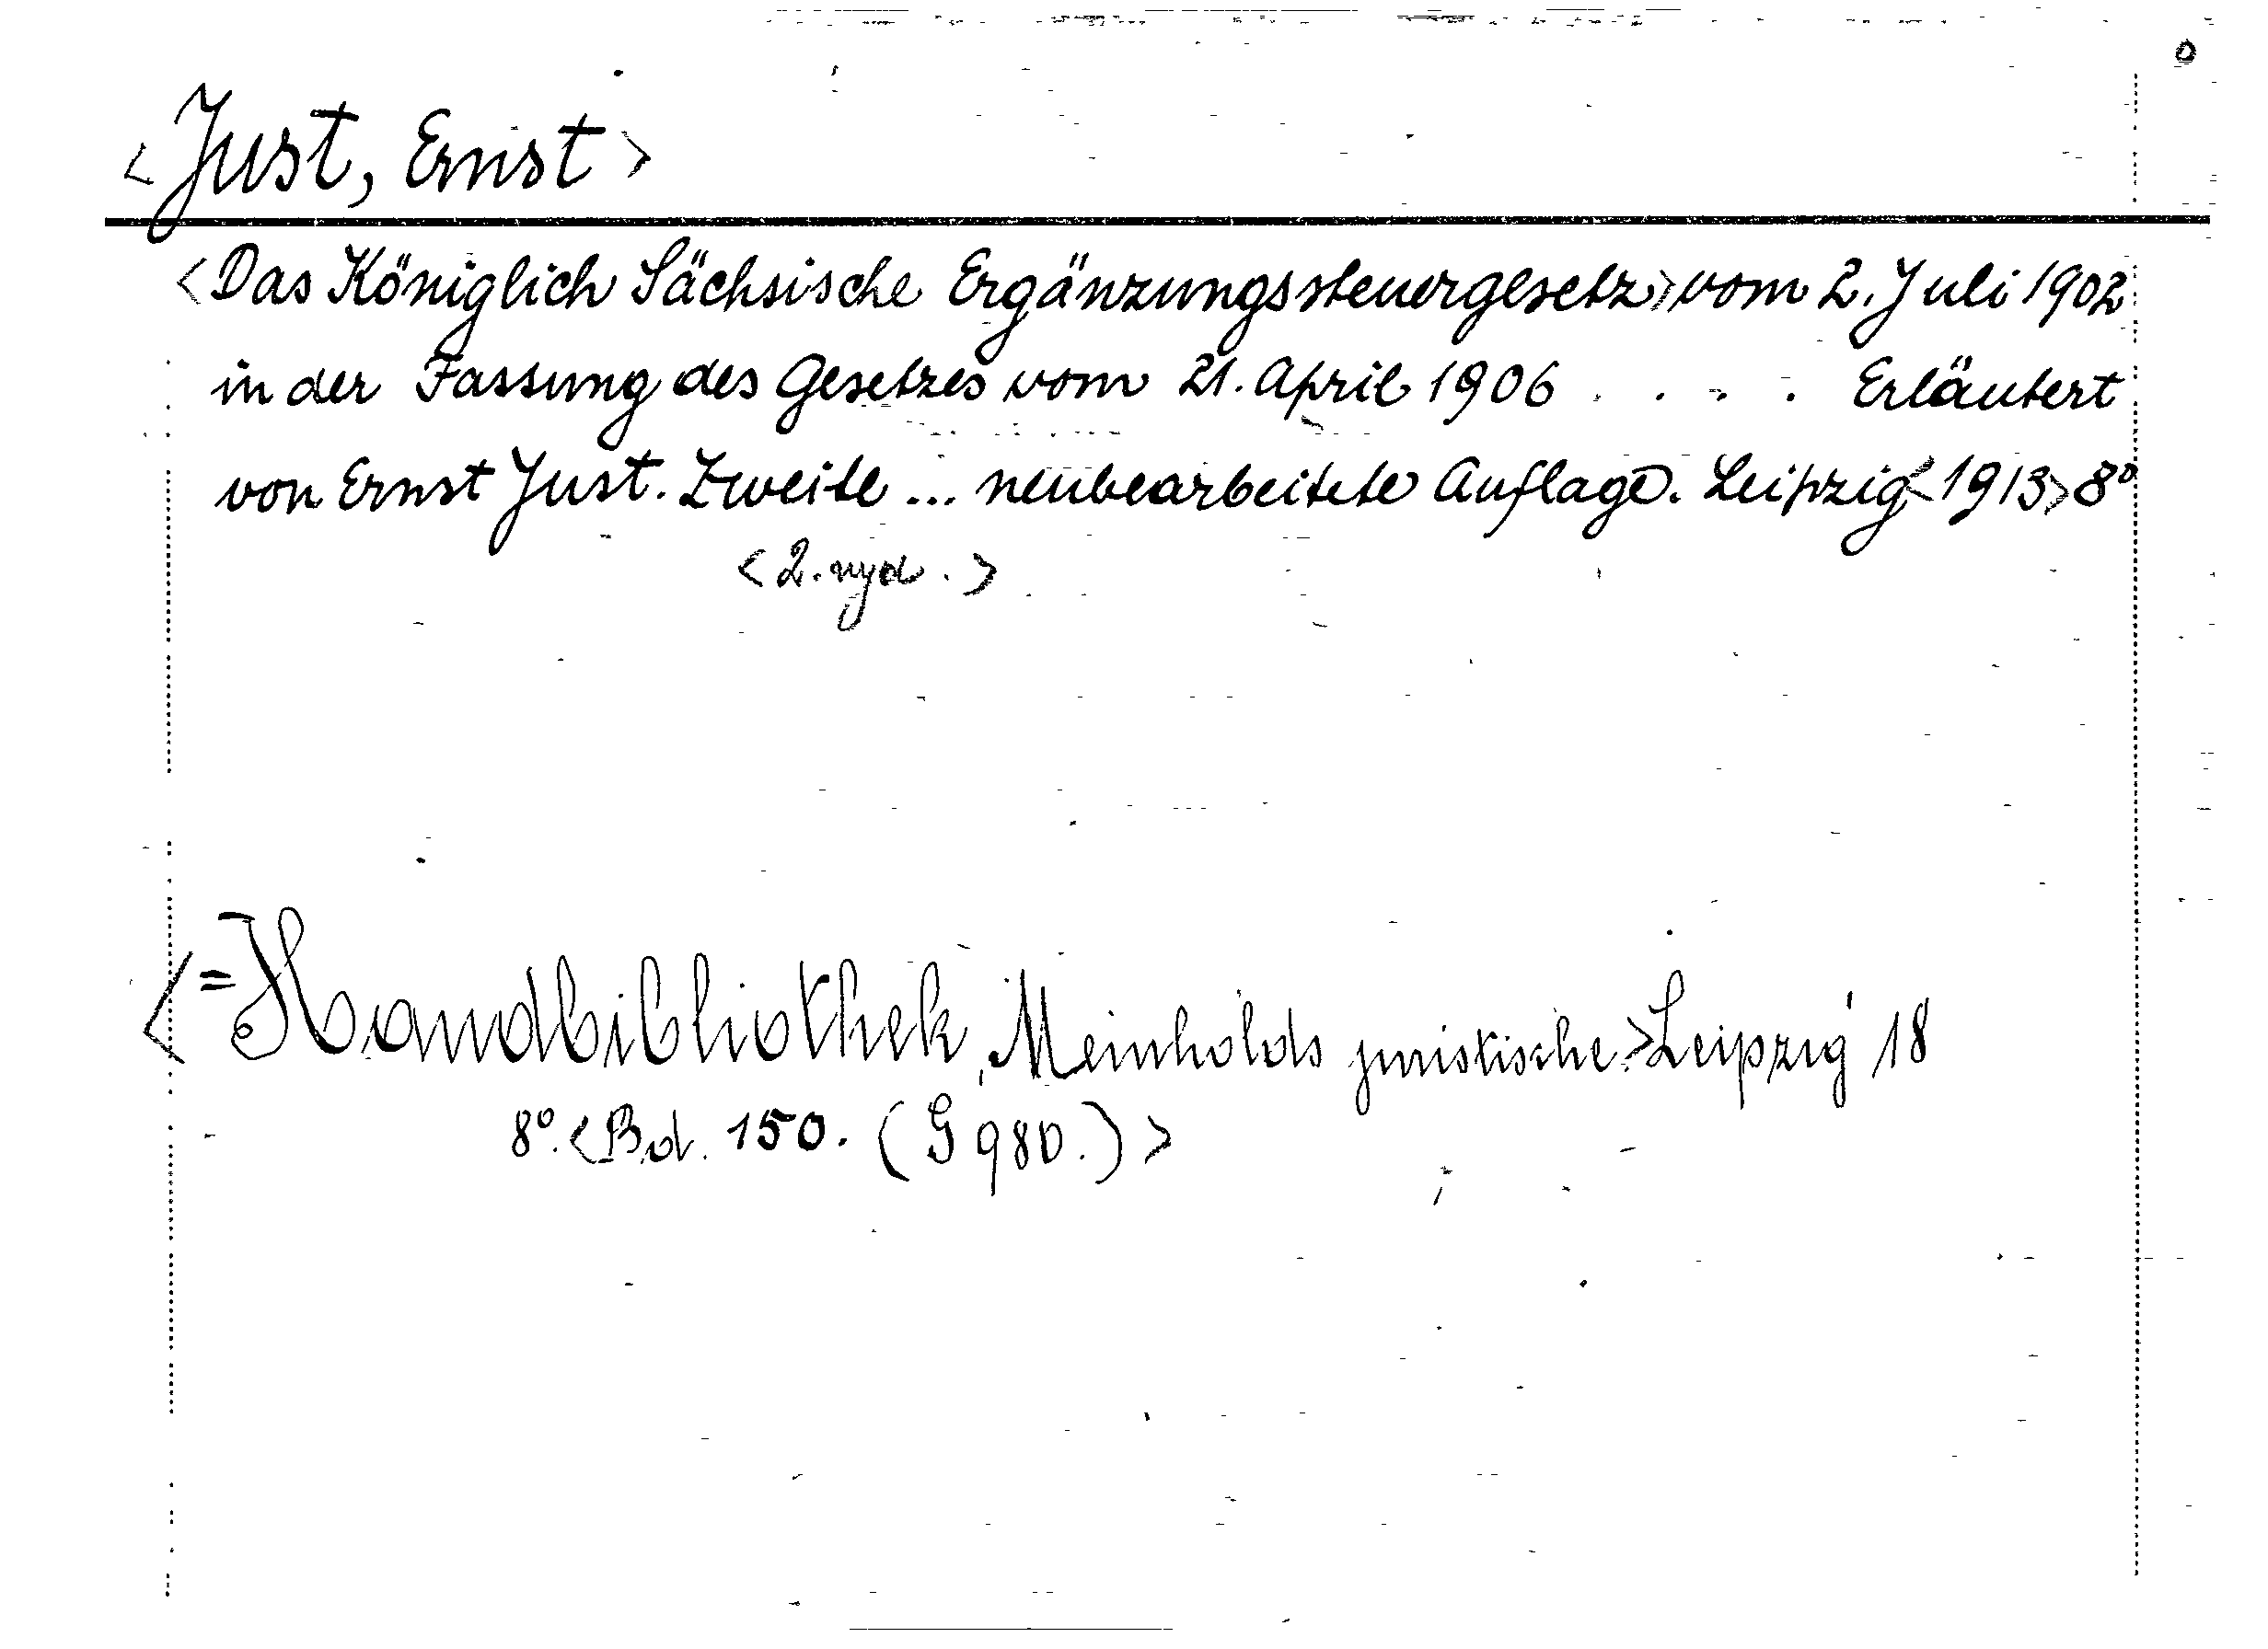 <Just, Ernst>
<Das Königlich Sächsische Ergänzungssteuergesetz> vom 2. Juli 1902
in der Fassung des Gesetzes vom 21. April 1906 . . . . Erläutert
von Ernst Just. Zweite ... neubearbeitete Auflage. Leipzig <1913> 8°
<2. nyd.>
<= Handbibliothek, Meinholds juristische.> Leipzig 18
8°. <Bd. 150. (G 980.)>